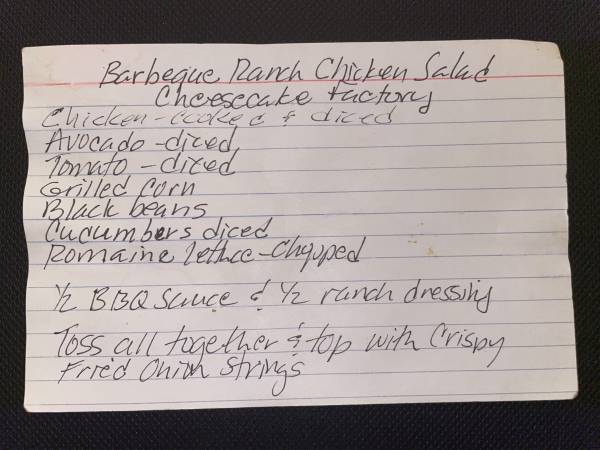 Barbeque Ranch Chicken Salad
Cheesecake Factory
Chicken-cooked & diced
Avocado-diced
Tomato-diced
Grilled corn
Black beans
Cucumbers diced
Romaine lettuce-chopped
1/2 BBQ sauce & 1/2 ranch dressing
Toss all together & top with crispy
Fried Onion Strings